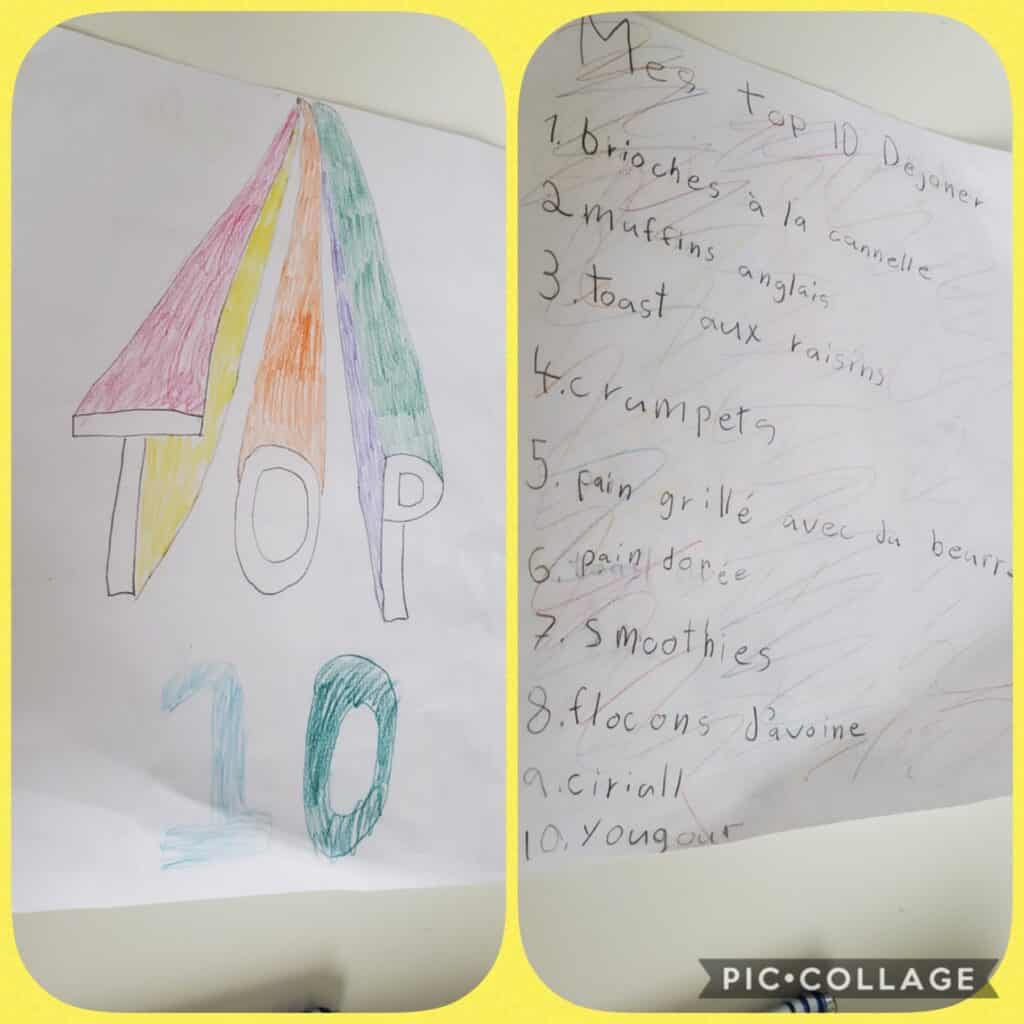 TOP
10
Mes top 10 Dejoner
1. brioches à la cannelle
2 muffins anglais
3. toast aux raisins
4. crumpets
5. pain grillé avec du beurr
6. pain dorée
7. smoothies
8. flocons d'avoine
9. ciriall
10. Yougour
PIC•COLLAGE